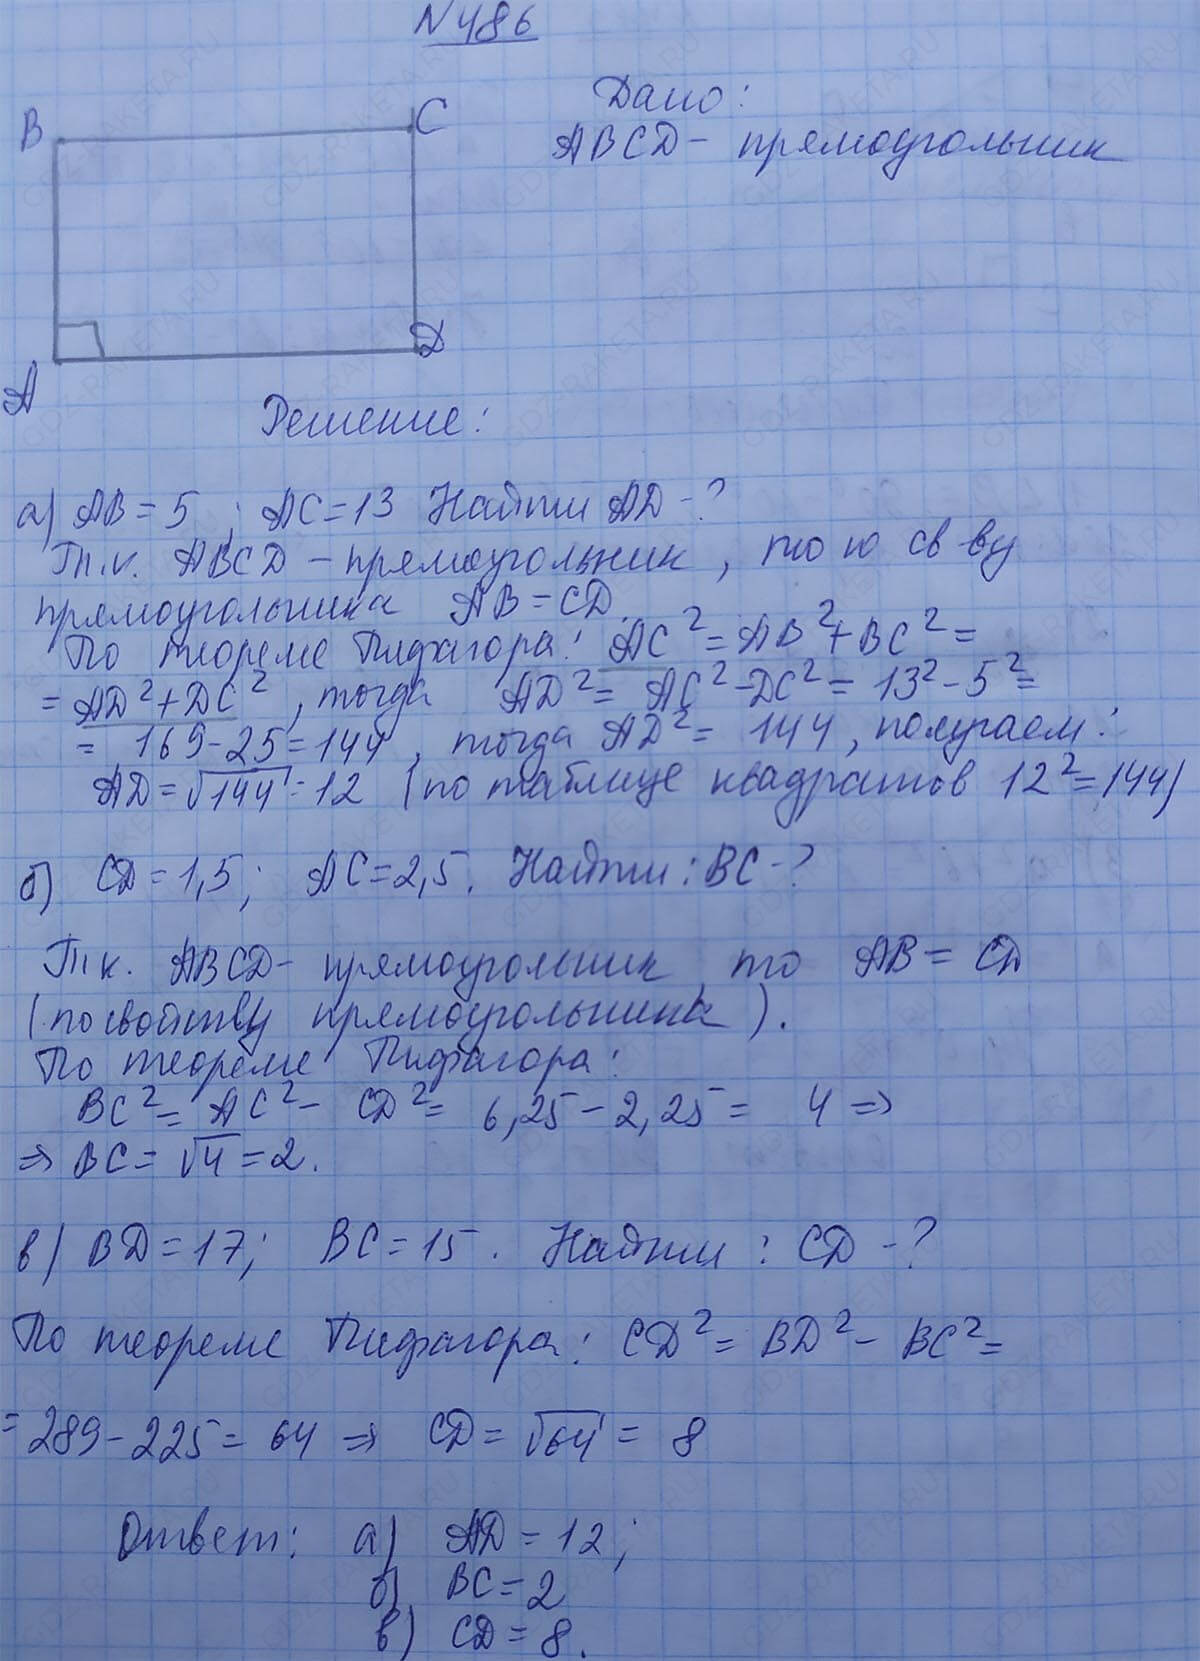 N 486
B
C
A
D
Дано:
ABCD - прямоугольник
Решение:
а) AB = 5 ; AC = 13 Найти AD - ?
Т.к. ABCD - прямоугольник, то по св-ву
прямоугольника AB = CD.
По теореме Пифагора: AC² = AB² + BC² =
= AD² + DC², тогда AD² = AC² - DC² = 13² - 5² =
= 169 - 25 = 144, тогда AD² = 144, получаем:
AD = √144 = 12 (по таблице квадратов 12² = 144)
б) CD = 1,5; AC = 2,5. Найти: BC - ?
Т.к. ABCD - прямоугольник, то AB = CD
(по свойству прямоугольника).
По теореме Пифагора:
BC² = AC² - CD² = 6,25 - 2,25 = 4 =>
=> BC = √4 = 2.
в) BD = 17; BC = 15. Найти: CD - ?
По теореме Пифагора: CD² = BD² - BC² =
= 289 - 225 = 64 => CD = √64 = 8
Ответ: а) AD = 12;
б) BC = 2
в) CD = 8.